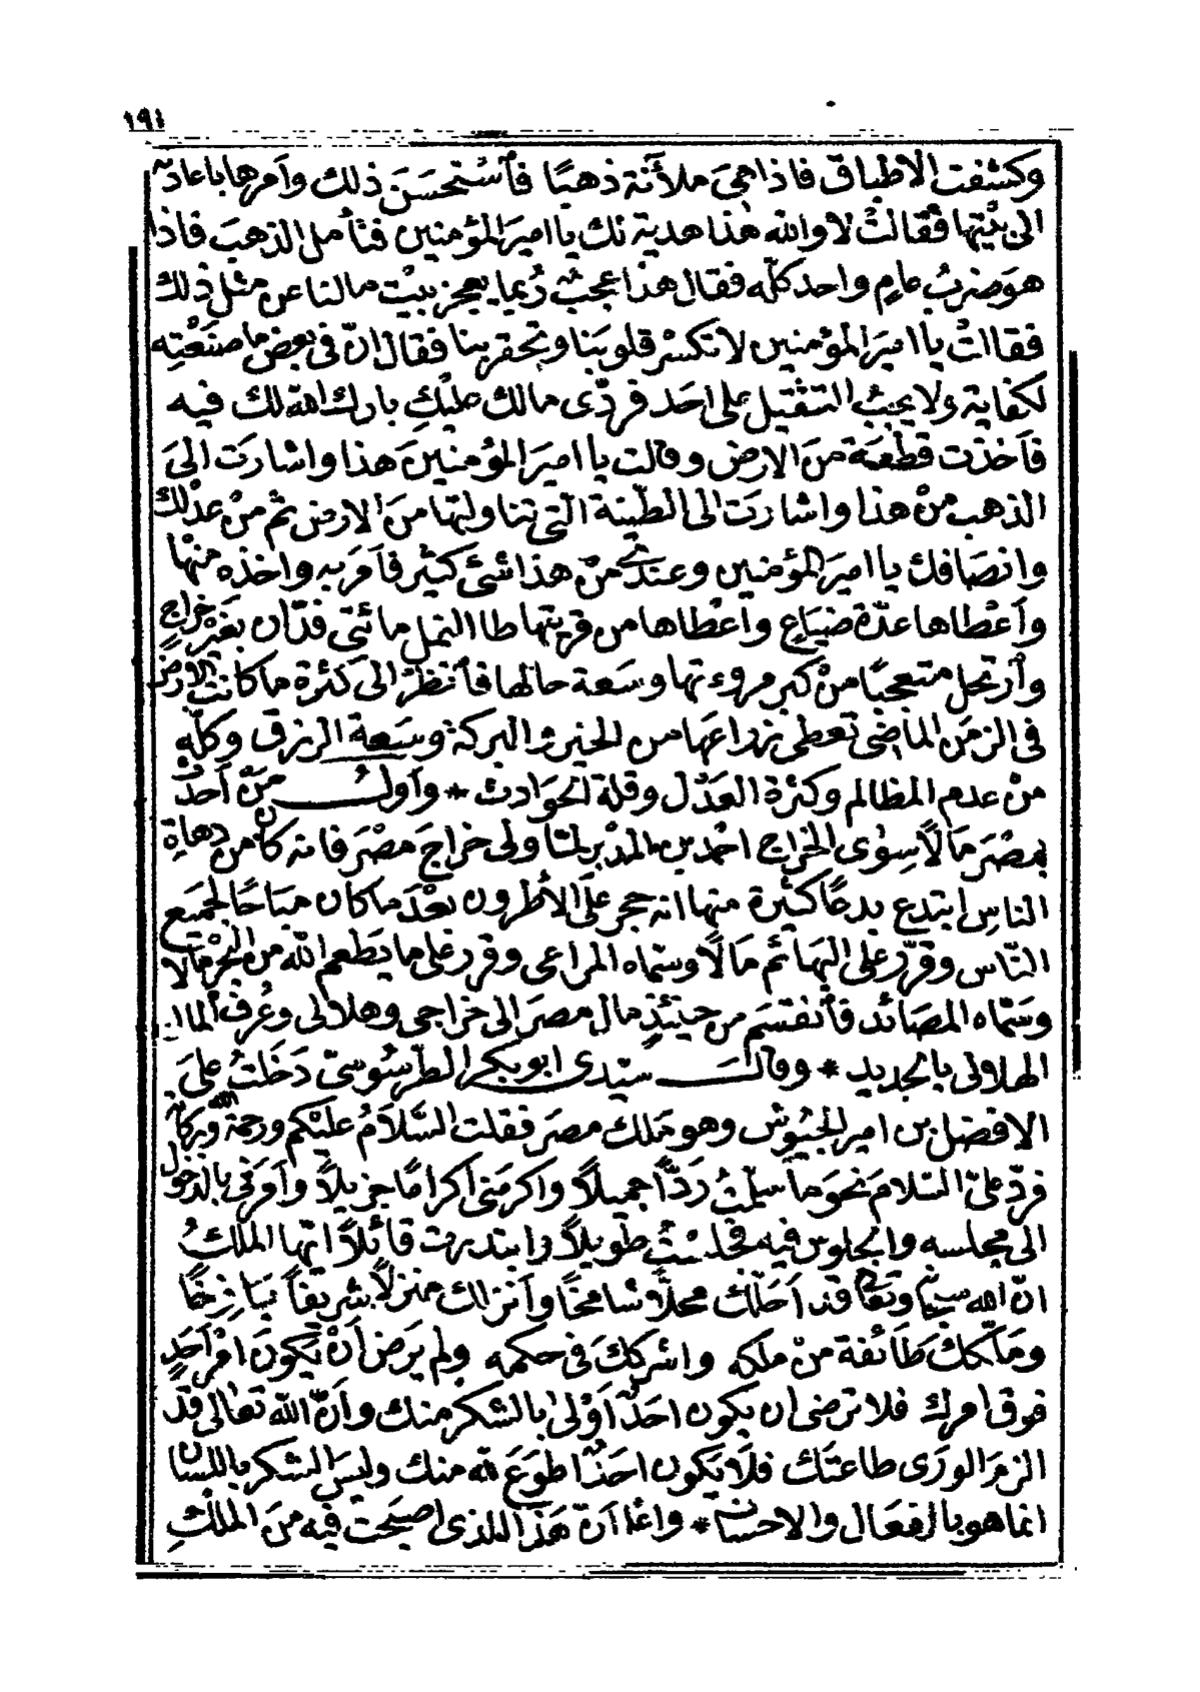 ١٩١
وكشفت الاطباق فاذا هى ملأنة ذهبًا فأستحسن ذلك وأمرها باعادته
الى بيتها فقالت لا والله هذا هدية لك يا امير المؤمنين فتأمل الذهب فاذا
هو ضرب عام واحد كله فقال هذا عجب ربما يعجز بيت مالنا عن مثل ذلك
فقالت يا امير المؤمنين لا تكسر قلوبنا وتحقر بنا فقال انّ فى بعض ما صنعته
لكفاية ولا يجب التثقيل على احد فردّى مالك عليك بارك الله لك فيه
فأخذت قطعة من الارض وقالت يا امير المؤمنين هذا واشارت الى
الذهب من هذا واشارت الى الطينة التى تناولتها من الارض ثم من عدلك
وانصافك يا امير المؤمنين وعندى من هذا شئ كثير فأمر به واخذه منها
وأعطاها عدّة ضياع وأعطاها من قريتها طا النمل مائتى فدّان بغير خراج
وأرتحل متعجبًا من كبر مروءتها وسعة حالها فأنظر الى كثرة ما كانت الارض
فى الزمن الماضى تعطى زراعها من الخير والبركة وسعة الرزق وكله
من عدم المظالم وكثرة العدل وقلة الحوادث * وأول من أحدث
بمصر مالًا سوى الخراج احمد بن المدبر لمّا ولى خراج مصر فانه كان من دهاة
الناس ابتدع بدعًا كثيرة منها انه حجر على الأطرون بعد ما كان مباحًا لجميع
النّاس وقرّر على البهائم مالًا وسمّاه المراعى وقرر على ما يطعم الله من البحر مالا
وسمّاه المصائد فأنقسم من حينئذٍ مال مصر الى خراجى وهلالى وعُرف المال
الهلالى بالجديد * وقال سيّدى ابو بكر الطرسوسىّ دخلتُ على
الافضل بن امير الجيوش وهو ملك مصر فقلت السّلامُ عليكم ورحمة الله وبركاته
فردّ علىّ السّلام نحو ما سلّمتُ رَدًّا جميلًا واكرمنى اكرامًا جزيلًا وأمرنى بالدخول
الى مجلسه والجلوس فيه فجلستُ طويلًا وابتدرت قائلًا ايّها الملك
انّ الله سبحانه وتعالى قد أحلّك محلًّا شامخًا وأنزلك منزلًا شريفًا باذخًا
وملّكك طائفة من ملكه واشركك فى حكمه ولم يرض أن يكون امر أحدٍ
فوق امرك فلا ترضى ان يكون احدٌ أولى بالشكر منك وأنّ الله تعالى قد
الزم الورى طاعتك فلا يكون احدٌ اطوع لله منك وليس الشكر باللسان
انما هو بالفعال والاحسان * واعلم أنّ هذا الذى اصبحت فيه من الملك